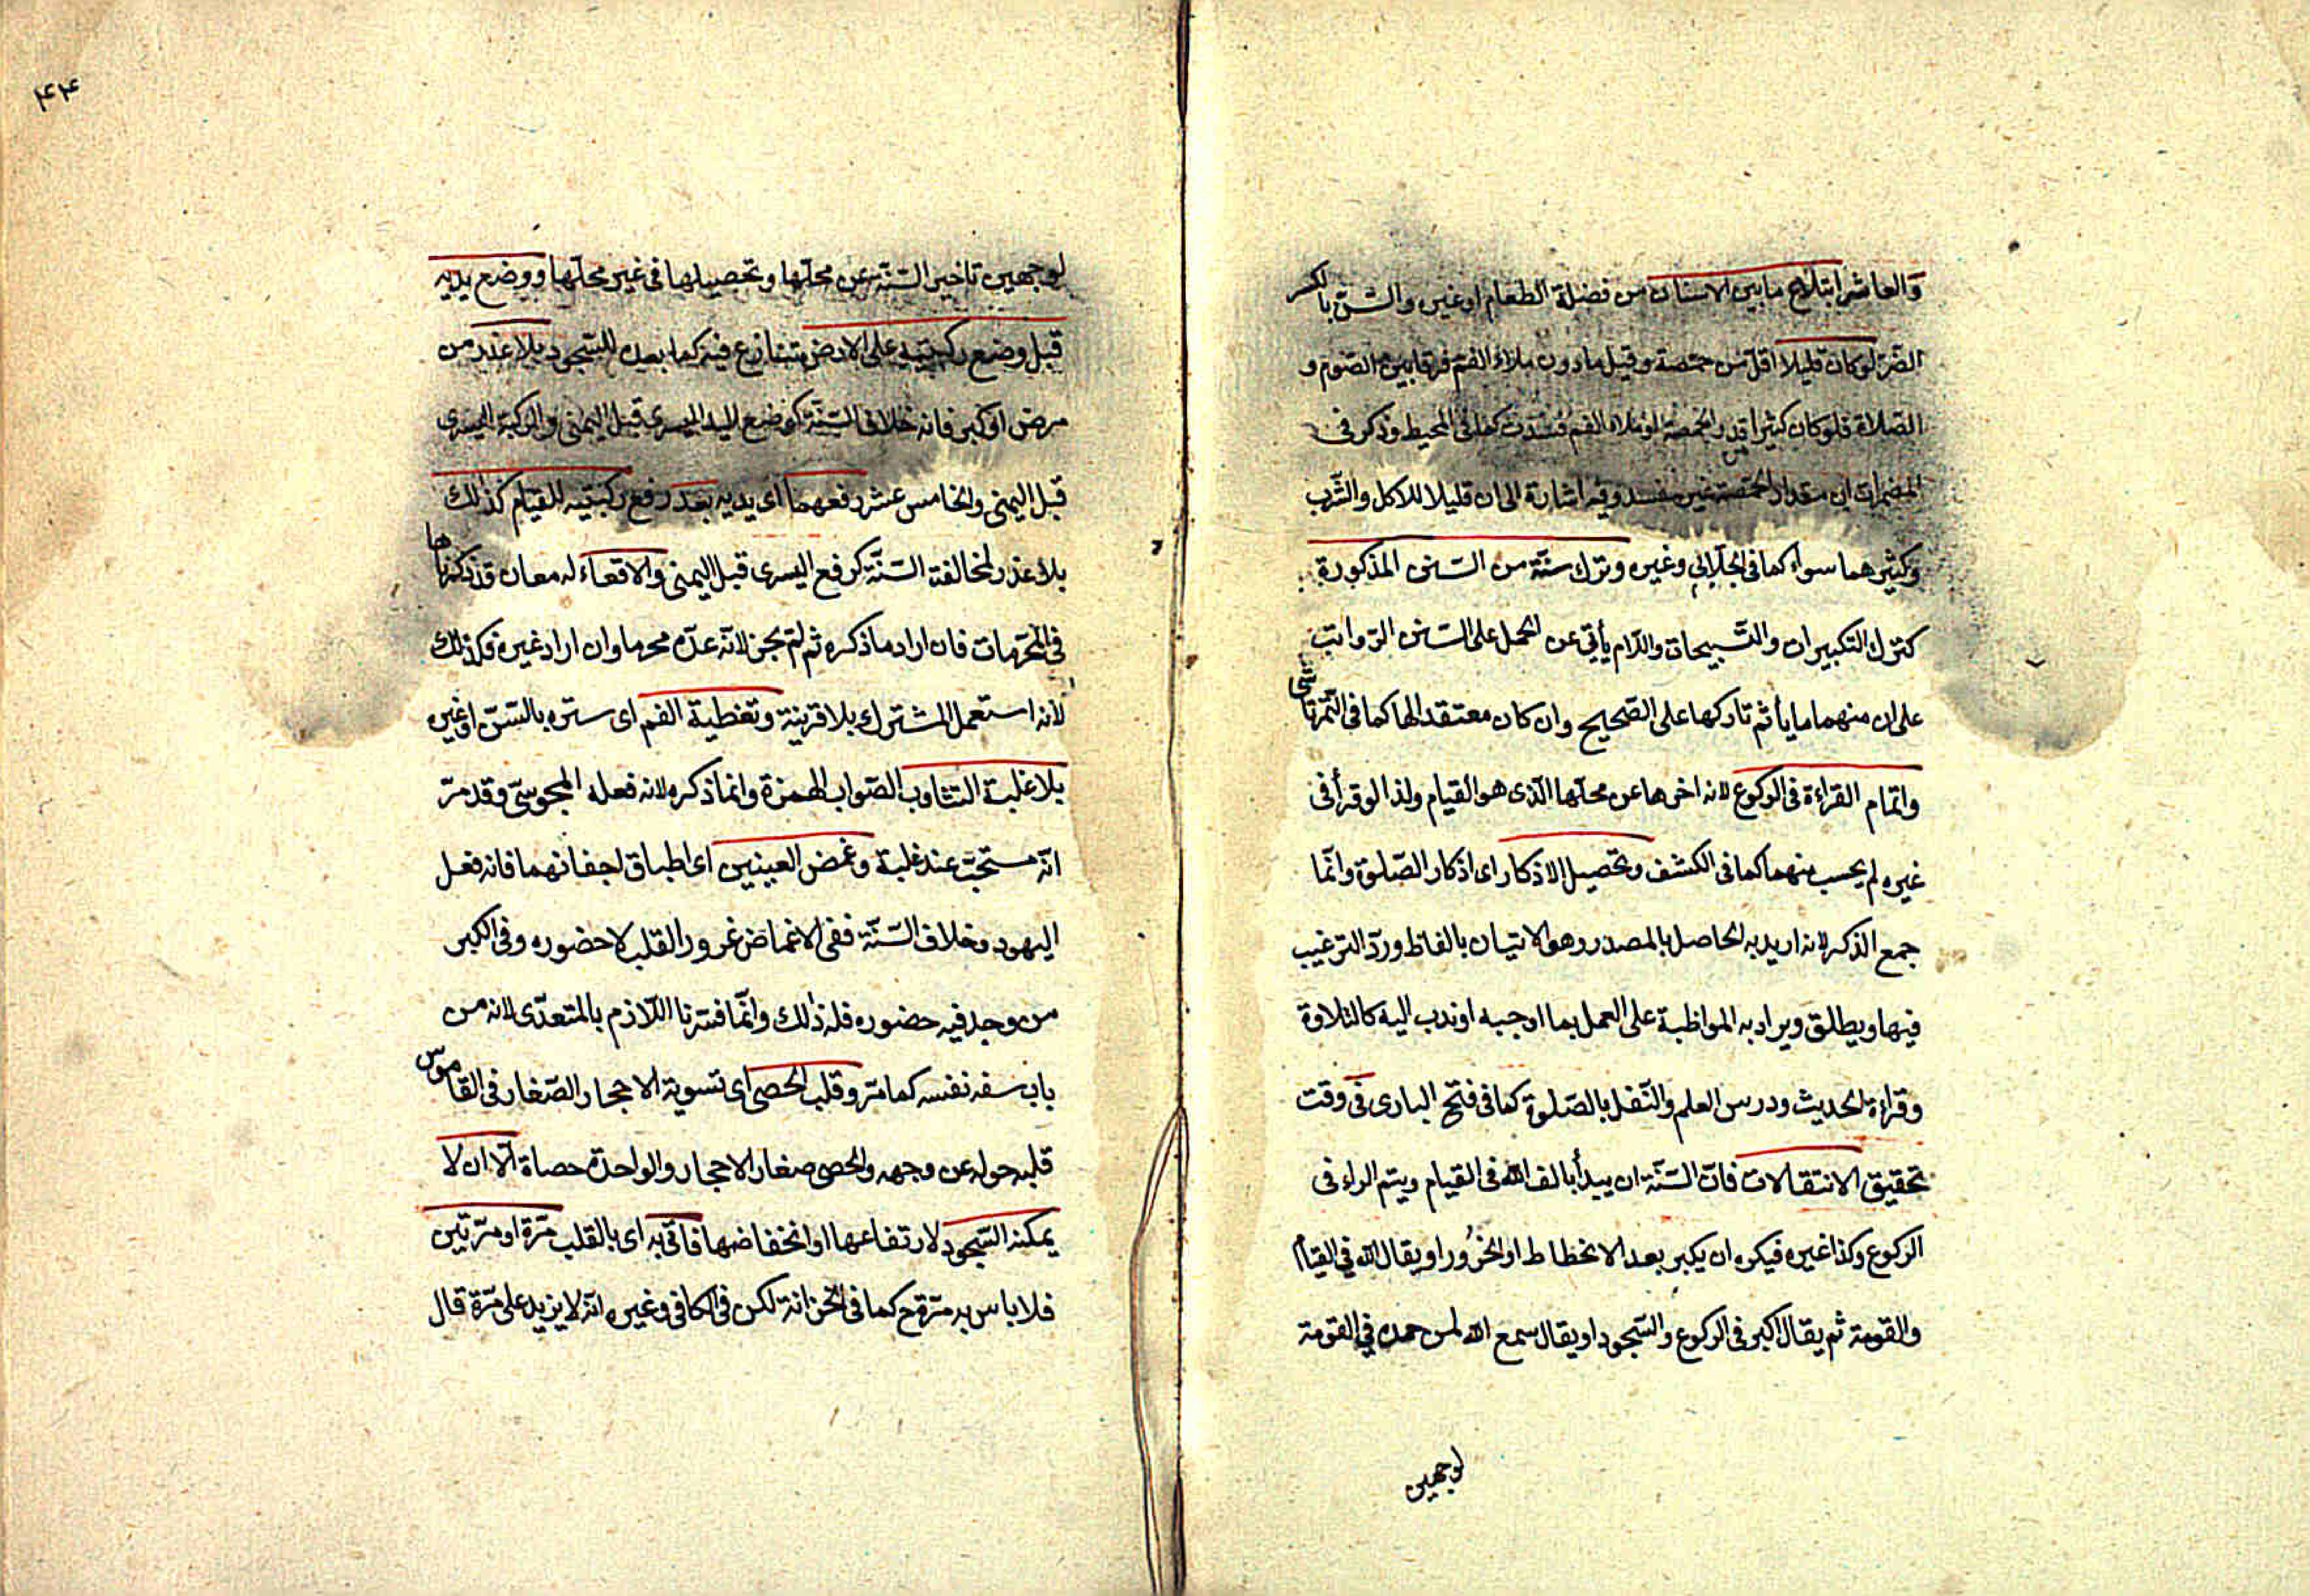 والعاشر ابتلاع ما بين الاسنان من فضلة الطعام او غيره والسن بالكسر
الضر لو كان قليلا اقل من حمصة وقيل ما دون ملاء الفم فرقا بين الصوم و
الصلاة فلو كان كثيرا قدر الحمصة او ملاء الفم فسدت كما فى المحيط وذكر فى
المضمرات ان مقدار الحمصة غير مفسد وفيه اشارة الى ان قليلا للاكل والشرب
وكثيرهما سواء كما فى الجلابى وغيره وترك سنّة من السنن المذكورة
كترك التكبيرات والتّسبيحات واللام يأبى عن الحمل على السنن الرّواتب
على ان منهما ما يأثم تاركها على الصّحيح وان كان معتقد الها كما فى التّمرتاشى
واتمام القراءة فى الركوع لانه اخرها عن محلّها الّذى هو القيام ولذا لو قرأ فى
غيره لم يحسب منهما كما فى الكشف وتحصيل الاذكار اى اذكار الصّلوة وانّما
جمع الذكر لانه اريد به الحاصل بالمصدر وهو الاتيان بالفاظ وردّ الترغيب
فيها ويطلق ويراد به المواظبة على العمل بما اوجبه او ندب اليه كالتلاوة
وقراءة الحديث ودرس العلم والنّفل بالصّلوة كما فى فتح البارى فى وقت
تحقيق الانتقالات فانّ السّنّة ان يبدأ بالف الله فى القيام ويتم الراء فى
الركوع وكذا غيره فيكره ان يكبر بعد الانحطاط او الخرُور او يقال الله فى القيام
والقومة ثم يقال اكبر فى الركوع والسّجود او يقال سمع الله لمن حمده فى القومة
لوجهين
٤٤
لوجهين تاخير السّنّة عن محلّها وتحصيلها فى غير محلّها ووضع يديه
قبل وضع ركبتيه على الارض تنازع فيه كما بعده للسّجود بلا عذر من
مرض او كبر فانه خلاف السّنّة كوضع اليد اليسرى قبل اليمنى والركبة اليسرى
قبل اليمنى والخامس عشر رفعهما اى يديه بعد رفع ركبتيه للقيام كذلك
بلا عذر لمخالفة السّنّة كرفع اليسرى قبل اليمنى والاقعاء له معان قد ذكرناها
فى المحرّمات فان اراد ما ذكره ثم لم يجز لانّه عدّه محرما وان اراد غيره فكذلك
لانه استعمل المشترك بلا قرينة وتغطية الفم اى ستره بالسّنّ او غيره
بلا غلبة التثاوب الصّواب الهمزة وانما ذكره لانه فعله المجوسىّ وقد مرّ
انّه مستحبّ عند غلبة وغمض العينين اى اطباق اجفانهما فانه فعل
اليهود وخلاف السّنّة ففى الاغماض غرور القلب لا حضوره وفى الكبر
من وجد فيه حضوره فله ذلك وانّما فسّرنا اللازم بالمتعدّى لانه من
باب سفه نفسه كما مرّ وقلب الحصى اى تسوية الاحجار الصّغار فى القاموس
قلبه حوله عن وجهه والحصى صغار الاحجار والواحدة حصاة الّا ان لا
يمكنه السّجود لارتفاعها او انخفاضها فاتى به اى بالقلب مرّة او مرّتين
فلا باس به مرّة ح كما فى الخزانة لكن فى الكافى وغيره انّه لا يزيد على مرّة قال